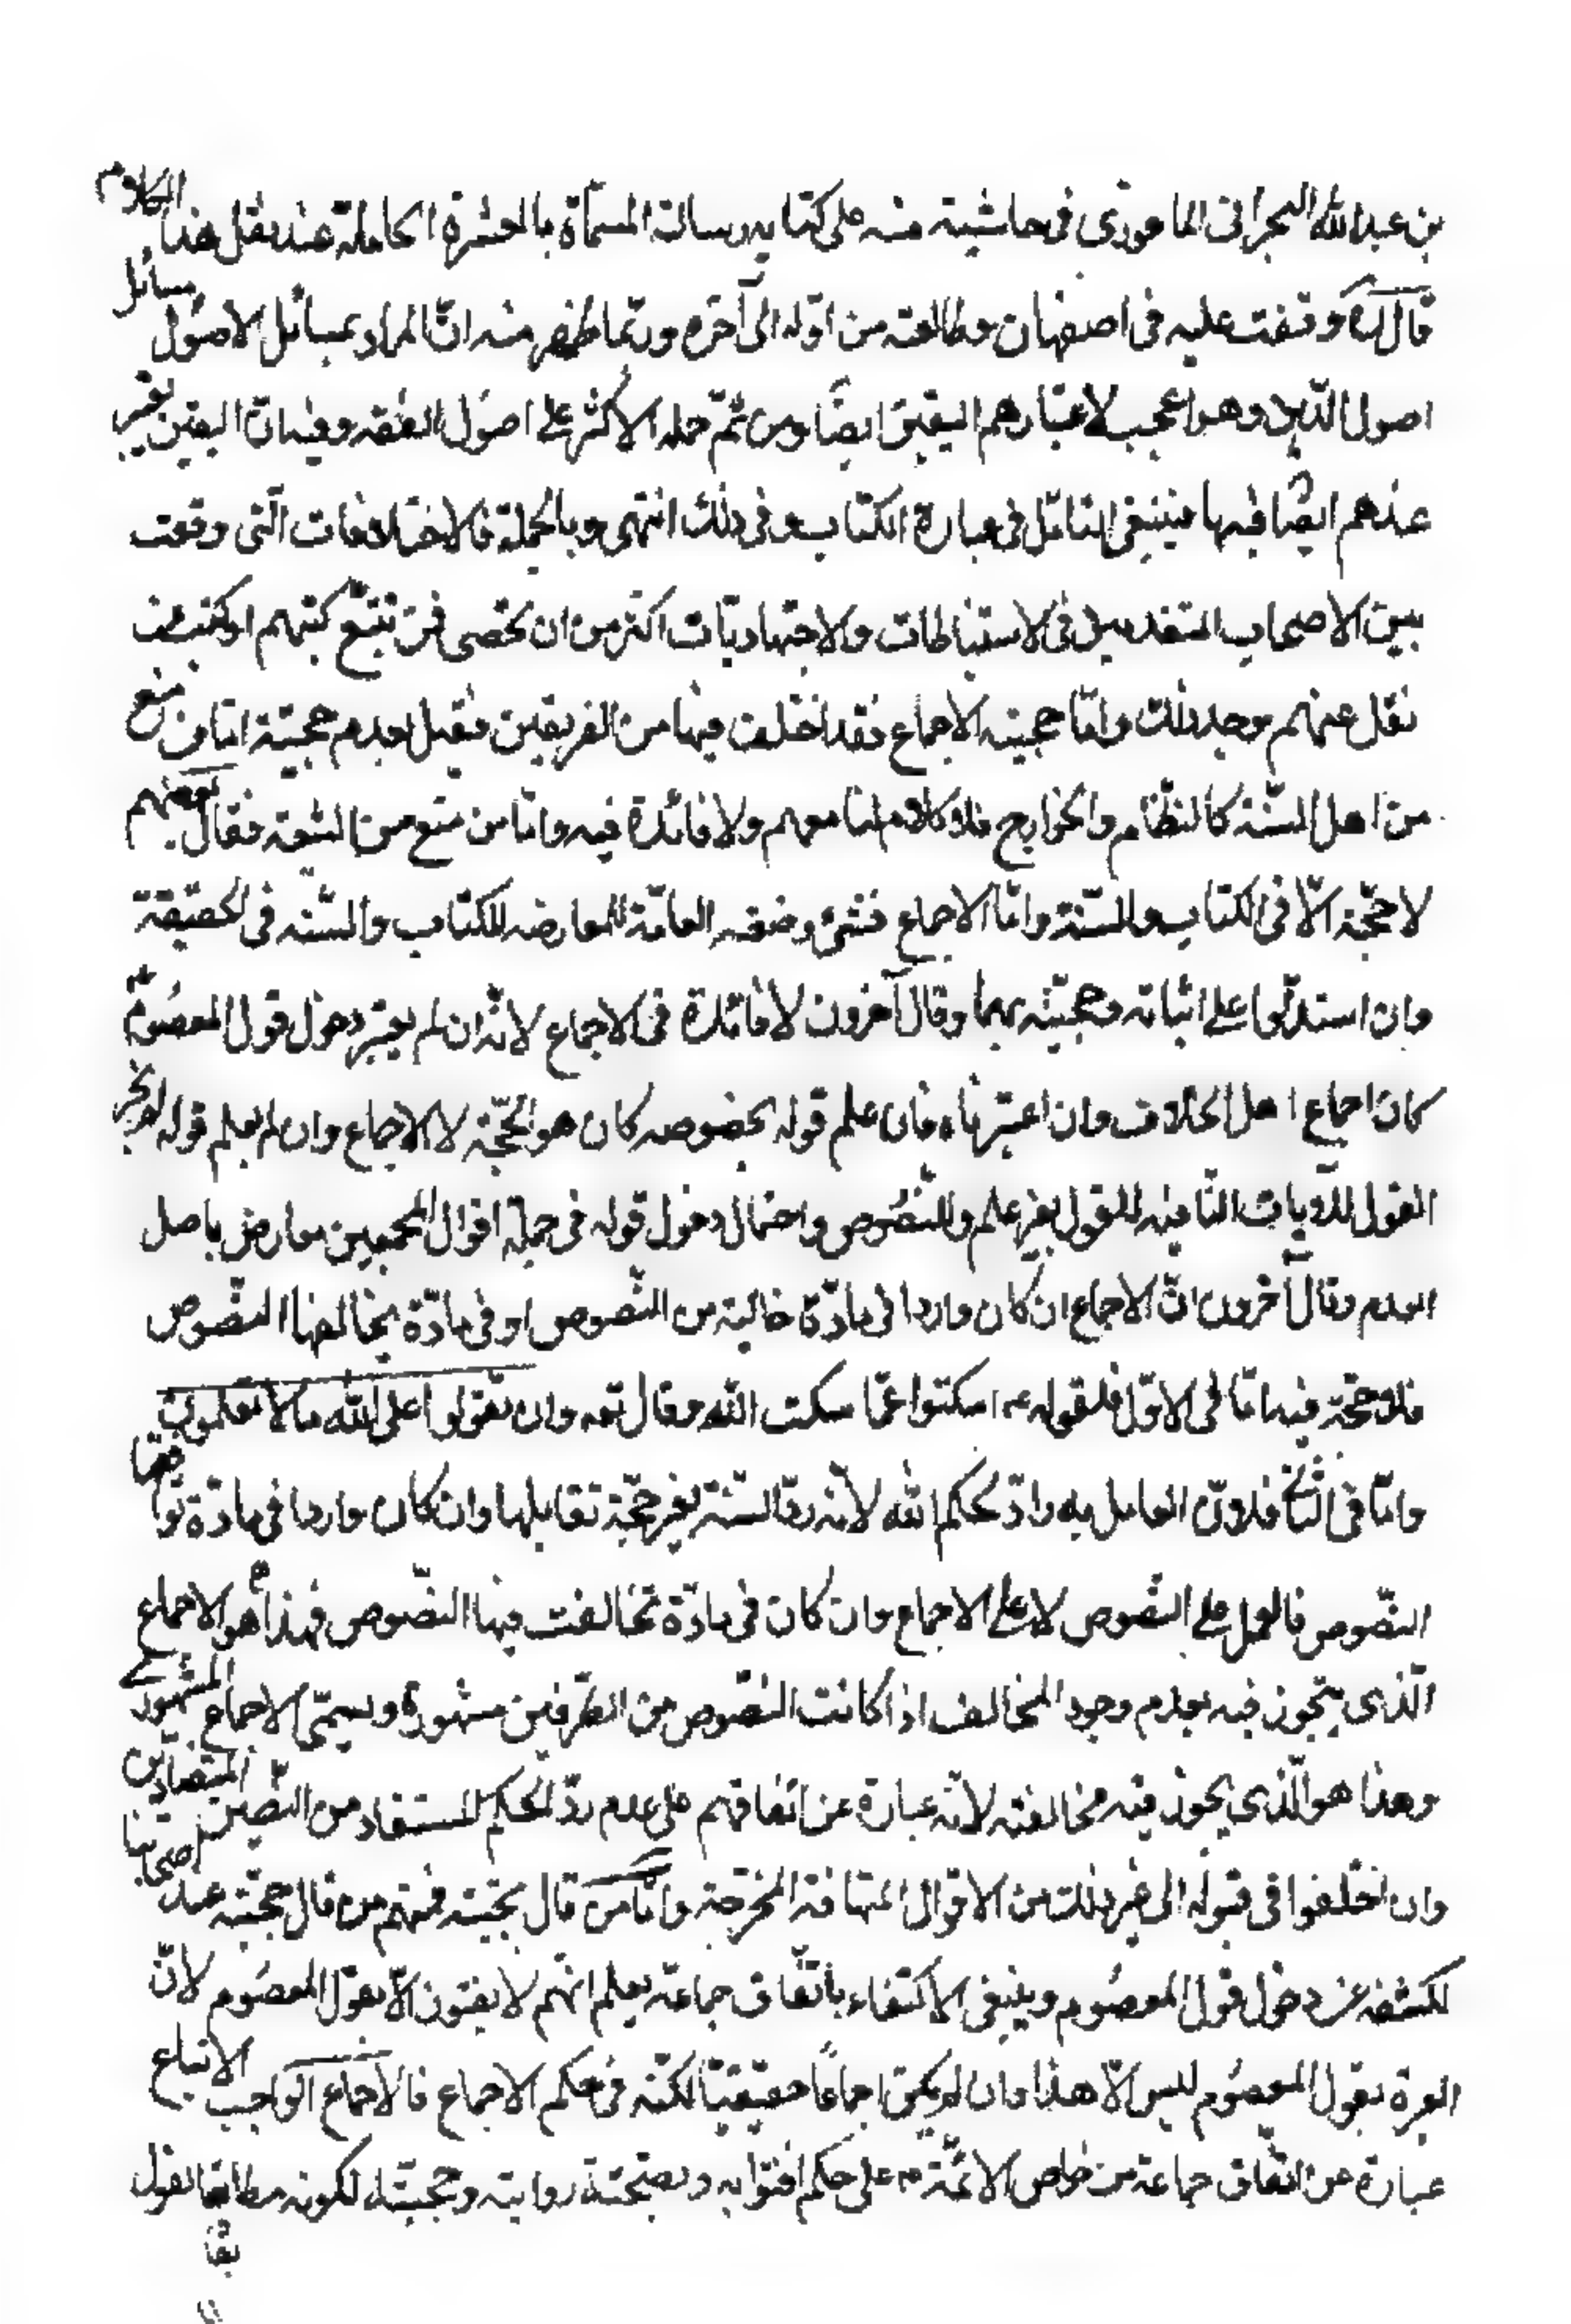 بن عبدالله البحرانى الماحوزى فى حاشيته منه على كتابه ورسالته المسمّاة بالعشرة الكاملة عند نقل هذا الكلام
قال وقفت عليه فى اصفهان وطالعته من اوّله الى آخره وربّما ظهر منه انّ المراد بمسائل الاصول مسائل
اصول الدّين وهو اعجب لاعتبارهم اليقين ايضًا ومن ثمّ حمله الاكثر على اصول الفقه وفيه انّ اليقين غير
عندهم ايضًا فيها فينبغى التامّل فى عبارة الكتاب وفى ذلك انتهى وبالجملة فالاختلافات الّتى وقعت
بين الاصحاب المتقدمين فى الاستنباطات والاجتهاديّات اكثر من ان تحصى فمن تتبّع كتبهم او كتب من
نقل عنهم وجد ذلك وامّا حجيته الاجماع فقد اختلف فيها من الفريقين فقيل بعدم حجيّته امّا من منع
من اهل السّنة كالنظّام والخوارج فلا كلام لنا معهم ولا فائدة فيه وامّا من منع من الشيعة فقال بعضهم
لا حجّة الّا فى الكتاب والسّنة وامّا الاجماع فشئ وضعه العامّة للمعارضه للكتاب والسّنه فى الحقيقة
وان استدلّوا على اثباته وحجيّته بهما وقال آخرون لا فائدة فى الاجماع لانّه ان لم يعتبر دخول قول المعصوم
كان اجماع اهل الخلاف وان اعتبرناه فان علم قوله بخصوصه كان هو الحجّة لا الاجماع وان لم يعلم قوله لم يجز
القول للرّوايات النّاهيه للقول بغير علم وللنّصوص واحتمال دخول قوله فى جملة اقوال المجمعين معارض باصل
العدم وقال آخرون انّ الاجماع ان كان واردا فى مادّة خالية من النّصوص او فى مادّة يخالفها النّصوص
فلا حجّة فيه امّا فى الاوّل فلقوله ع اسكتوا عمّا سكت الله وقال تعه وان تقولوا على الله ما لا تعلمون
وامّا فى الثّانى فلانّ العامل به رادّ لحكم الله لانّه ردّ السّنة بغير حجّة تقابلها وان كان واردا فى مادّة توافقها
النّصوص فالعمل على النّصوص لا على الاجماع وان كان فى مادّة تخالفت فيها النّصوص فهذا هو الاجماع
الّذى يتجوز فيه بعدم وجود المخالف اذا كانت النّصوص من الطّرفين مشهورة ويسمّى الاجماع المشهورى
وهذا هو الّذى يجوز فيه مخالفته لانّه عبارة عن اتفاقهم على عدم ردّ الحكم المستفاد من النّصّين المتضادّين
وان اختلفوا فى قبوله الى غير ذلك من الاقوال المتهافتة المخرجة وامّا من قال بحجيّته فمنهم من قال حجيّته عند اصحابنا
لكشفه عن دخول قول المعصوم وينبغى الاكتفاء باتّفاق جماعة يعلم انّهم لا يفتون الّا بقول المعصوم لانّ
العبرة بقول المعصوم ليس الّا هذا وان لم يكن اجماعًا حقيقيّا لكنّه فى حكم الاجماع فالاجماع الواجب الاتباع
عبارة عن اتّفاق جماعة من خواص الائمّة ع على حكم افتوا به وبصحّة رواية وحجيّتها لكونه مطابقا لقول